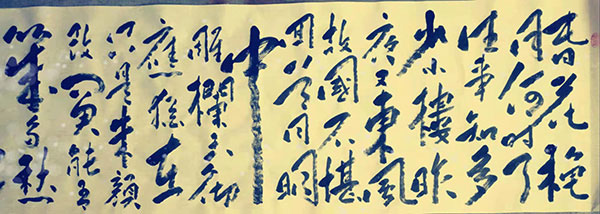 春花秋
月何时了
往事知多
少小樓昨
夜又東風
故國不堪
回首月明
中
雕欄玉砌
應猶在
只是朱顔
改問君能有
幾多愁